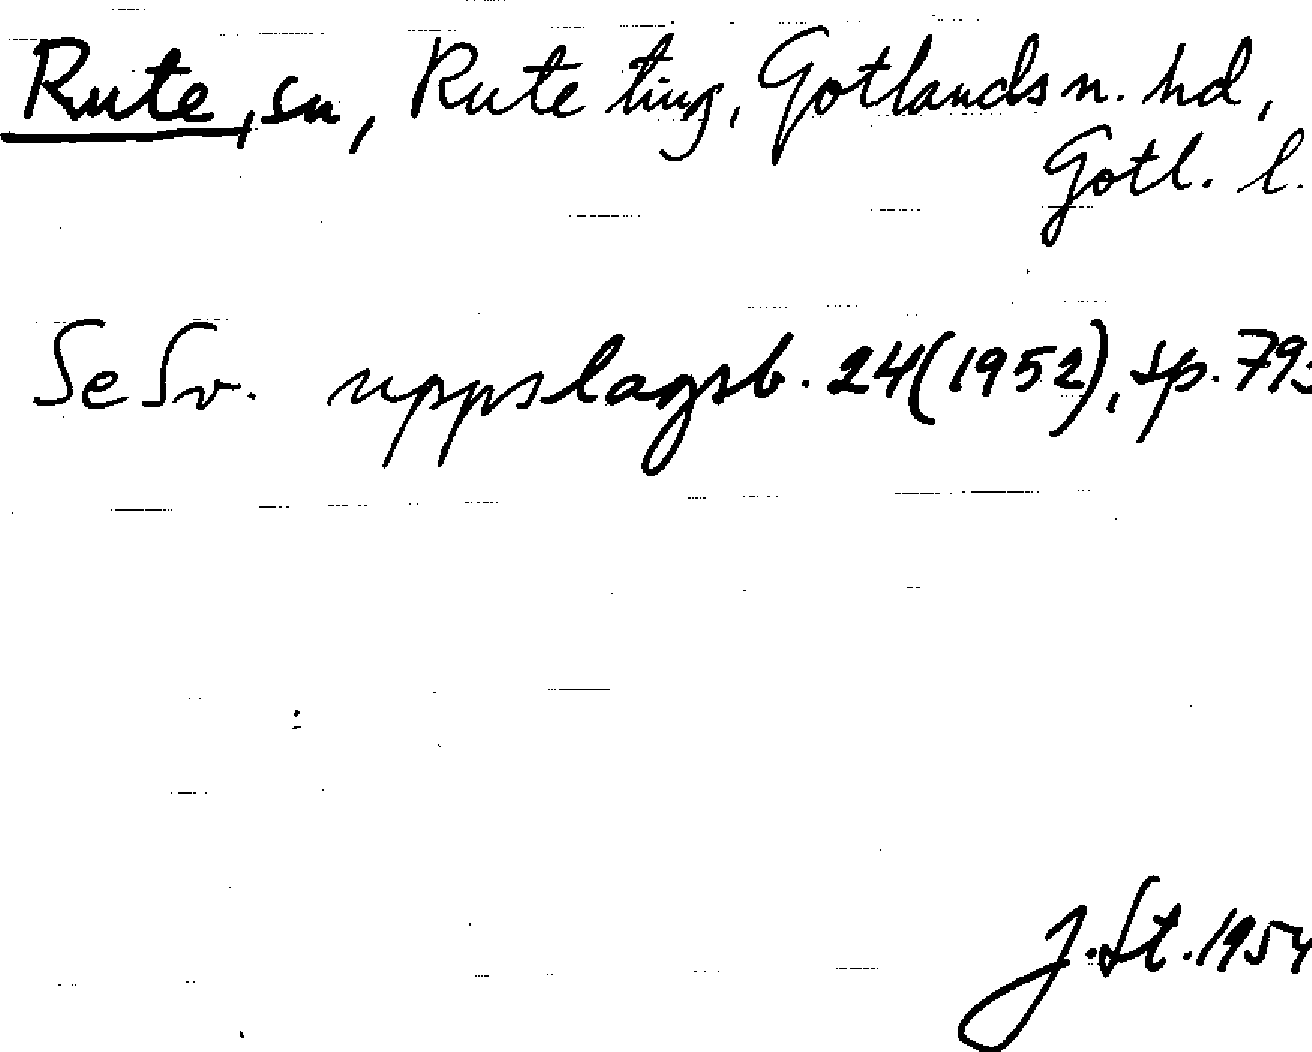 Rute, sn, Rute ting, Gotlands n. hd,
Gotl. l.
Se Sv. uppslagsb. 24 (1952), sp. 793
J. St. 1954